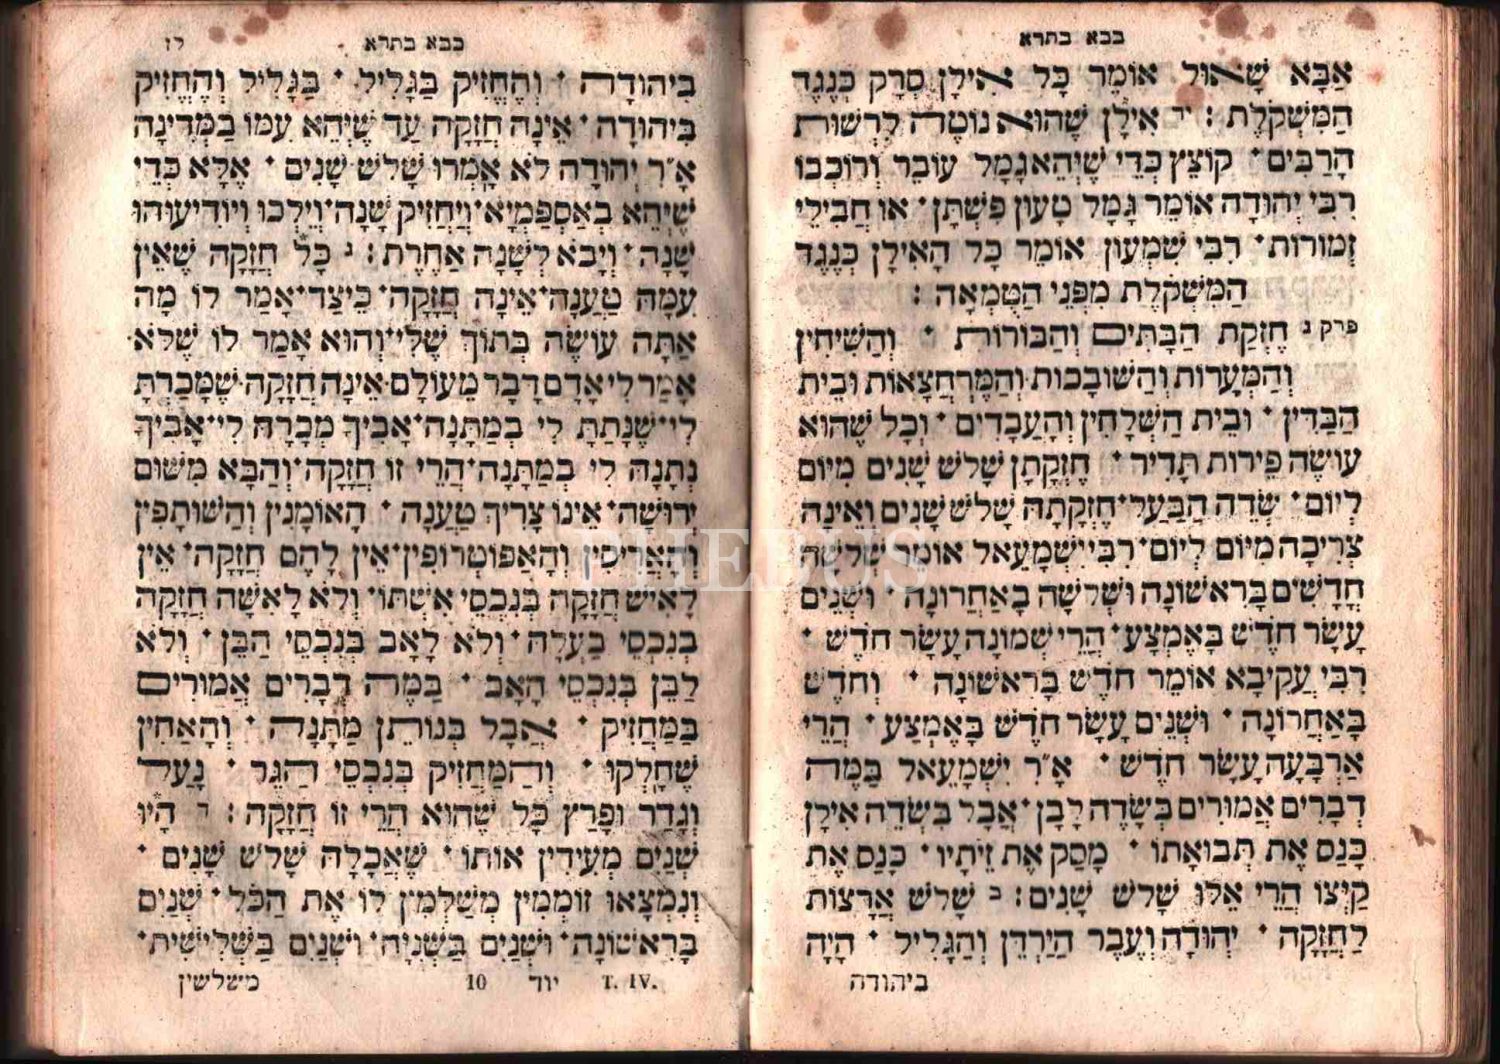 בבא בתרא
אַבָּא שָׁאוּל אוֹמֵר כָּל אִילָן סְרָק כְּנֶגֶד
הַמִּשְׁקֹלֶת : יד אִילָן שֶׁהוּא נוֹטֶה לִרְשׁוּת
הָרַבִּים · קוֹצֵץ כְּדֵי שֶׁיְּהֵא גָמָל עוֹבֵר וְרוֹכְבוֹ
רִבִּי יְהוּדָה אוֹמֵר גָּמָל טָעוּן פִּשְׁתָּן · אוֹ חֲבִילֵי
זְמוֹרוֹת · רִבִּי שִׁמְעוֹן אוֹמֵר כָּל הָאִילָן כְּנֶגֶד
הַמִּשְׁקֹלֶת מִפְּנֵי הַטֻּמְאָה :
פרק ג חֶזְקַת הַבָּתִּים וְהַבּוֹרוֹת · וְהַשִּׁיחִין
וְהַמְּעָרוֹת וְהַשּׁוֹבָכוֹת וְהַמֶּרְחֲצָאוֹת וּבֵית
הַבַּדִּין · וּבֵית הַשְּׁלָחִין וְהָעֲבָדִים · וְכָל שֶׁהוּא
עוֹשֶׂה פֵירוֹת תָּדִיר · חֶזְקָתָן שָׁלֹשׁ שָׁנִים מִיּוֹם
לְיוֹם · שְׂדֵה הַבַּעַל · חֶזְקָתָהּ שָׁלֹשׁ שָׁנִים וְאֵינָהּ
צְרִיכָה מִיּוֹם לְיוֹם · רִבִּי יִשְׁמָעֵאל אוֹמֵר שְׁלֹשָׁה
חֳדָשִׁים בָּרִאשׁוֹנָה וּשְׁלֹשָׁה בָאַחֲרוֹנָה · וּשְׁנֵים
עָשָׂר חֹדֶשׁ בָּאֶמְצַע · הֲרֵי שְׁמוֹנָה עָשָׂר חֹדֶשׁ ·
רִבִּי עֲקִיבָא אוֹמֵר חֹדֶשׁ בָּרִאשׁוֹנָה · וְחֹדֶשׁ
בָּאַחֲרוֹנָה · וּשְׁנֵים עָשָׂר חֹדֶשׁ בָּאֶמְצַע · הֲרֵי
אַרְבָּעָה עָשָׂר חֹדֶשׁ · אָ״ר יִשְׁמָעֵאל בַּמֶּה
דְבָרִים אֲמוּרִים בִּשְׂדֵה לָבָן · אֲבָל בִּשְׂדֵה אִילָן
כָּנַס אֶת תְּבוּאָתוֹ · מָסַק אֶת זֵיתָיו · כָּנַס אֶת
קַיִצוֹ הֲרֵי אֵלּוּ שָׁלֹשׁ שָׁנִים : ב שָׁלֹשׁ אֲרָצוֹת
לַחֲזָקָה · יְהוּדָה וְעֵבֶר הַיַּרְדֵּן וְהַגָּלִיל · הָיָה
ביהודה
בבא בתרא לז
בִּיהוּדָה · וְהֶחֱזִיק בַּגָּלִיל · בַּגָּלִיל וְהֶחֱזִיק
בִּיהוּדָה · אֵינָהּ חֲזָקָה עַד שֶׁיְּהֵא עִמּוֹ בַּמְּדִינָה
אָ״ר יְהוּדָה לֹא אָמְרוּ שָׁלֹשׁ שָׁנִים · אֶלָּא כְּדֵי
שֶׁיְּהֵא בְאַסְפַּמְיָא · וְיַחֲזִיק שָׁנָה · וְיֵלְכוּ וְיוֹדִיעוּהוּ
שָׁנָה · וְיָבֹא לְשָׁנָה אַחֶרֶת : ג כָּל חֲזָקָה שֶׁאֵין
עִמָּהּ טַעֲנָה · אֵינָהּ חֲזָקָה · כֵּיצַד · אָמַר לוֹ מָה
אַתָּה עוֹשֶׂה בְּתוֹךְ שֶׁלִּי · וְהוּא אָמַר לוֹ שֶׁלֹּא
אָמַר לִי אָדָם דָּבָר מֵעוֹלָם · אֵינָהּ חֲזָקָה · שֶׁמָּכַרְתָּ
לִי · שֶׁנָּתַתָּ לִי בְמַתָּנָה · אָבִיךָ מְכָרָהּ לִי · אָבִיךָ
נְתָנָהּ לִי בְמַתָּנָה · הֲרֵי זוֹ חֲזָקָה · וְהַבָּא מִשּׁוּם
יְרוּשָׁה · אֵינוֹ צָרִיךְ טַעֲנָה · הָאוֹמָנִין וְהַשּׁוּתָפִין
וְהָאֲרִיסִין וְהָאַפּוֹטְרוֹפִּין · אֵין לָהֶם חֲזָקָה · אֵין
לָאִישׁ חֲזָקָה בְּנִכְסֵי אִשְׁתּוֹ · וְלֹא לָאִשָּׁה חֲזָקָה
בְּנִכְסֵי בַעְלָהּ · וְלֹא לָאָב בְּנִכְסֵי הַבֵּן · וְלֹא
לַבֵּן בְּנִכְסֵי הָאָב · בַּמֶּה דְבָרִים אֲמוּרִים
בְּמַחֲזִיק · אֲבָל בְּנוֹתֵן מַתָּנָה · וְהָאַחִין
שֶׁחָלְקוּ · וְהַמַּחֲזִיק בְּנִכְסֵי הַגֵּר · נָעַל
וְגָדַר וּפָרַץ כָּל שֶׁהוּא הֲרֵי זוֹ חֲזָקָה : ד הָיוּ
שְׁנַיִם מְעִידִין אוֹתוֹ · שֶׁאֲכָלָהּ שָׁלֹשׁ שָׁנִים ·
וְנִמְצְאוּ זוֹמְמִין מְשַׁלְּמִין לוֹ אֶת הַכֹּל · שְׁנַיִם
בָּרִאשׁוֹנָה · וּשְׁנַיִם בַּשְּׁנִיָּה · וּשְׁנַיִם בַּשְּׁלִישִׁית ·
T. IV. יוד 10 משלשין
PHEBUS